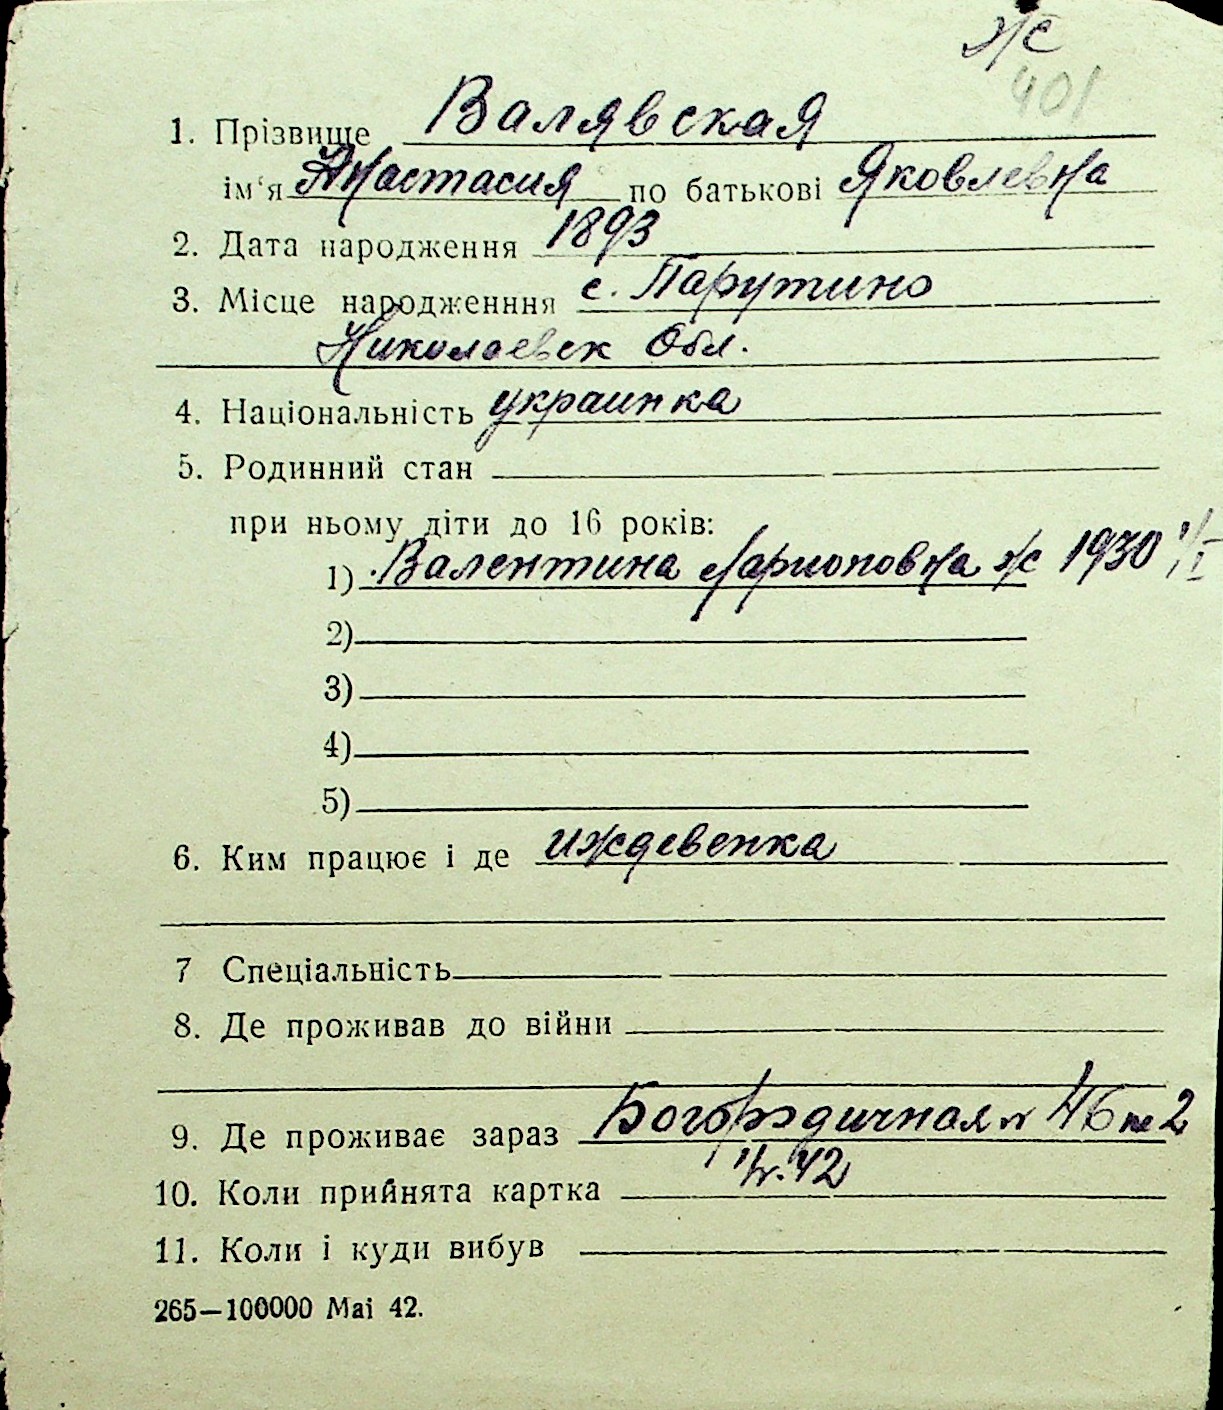 ж
401
1. Прізвище Валявская
ім'я Анастасия по батькові Яковлевна
2. Дата народження 1893
3. Місце народженння с. Парутино
Николаевск Обл.
4. Національність украинка
5. Родинний стан
при ньому діти до 16 років:
1) Валентина Ларионовна ж 1930
2)
3)
4)
5)
6. Ким працює і де иждевенка
7 Спеціальність
8. Де проживав до війни
9. Де проживає зараз 46 2
10. Коли прийнята картка 42
11. Коли і куди вибув
265—100000 Mai 42.